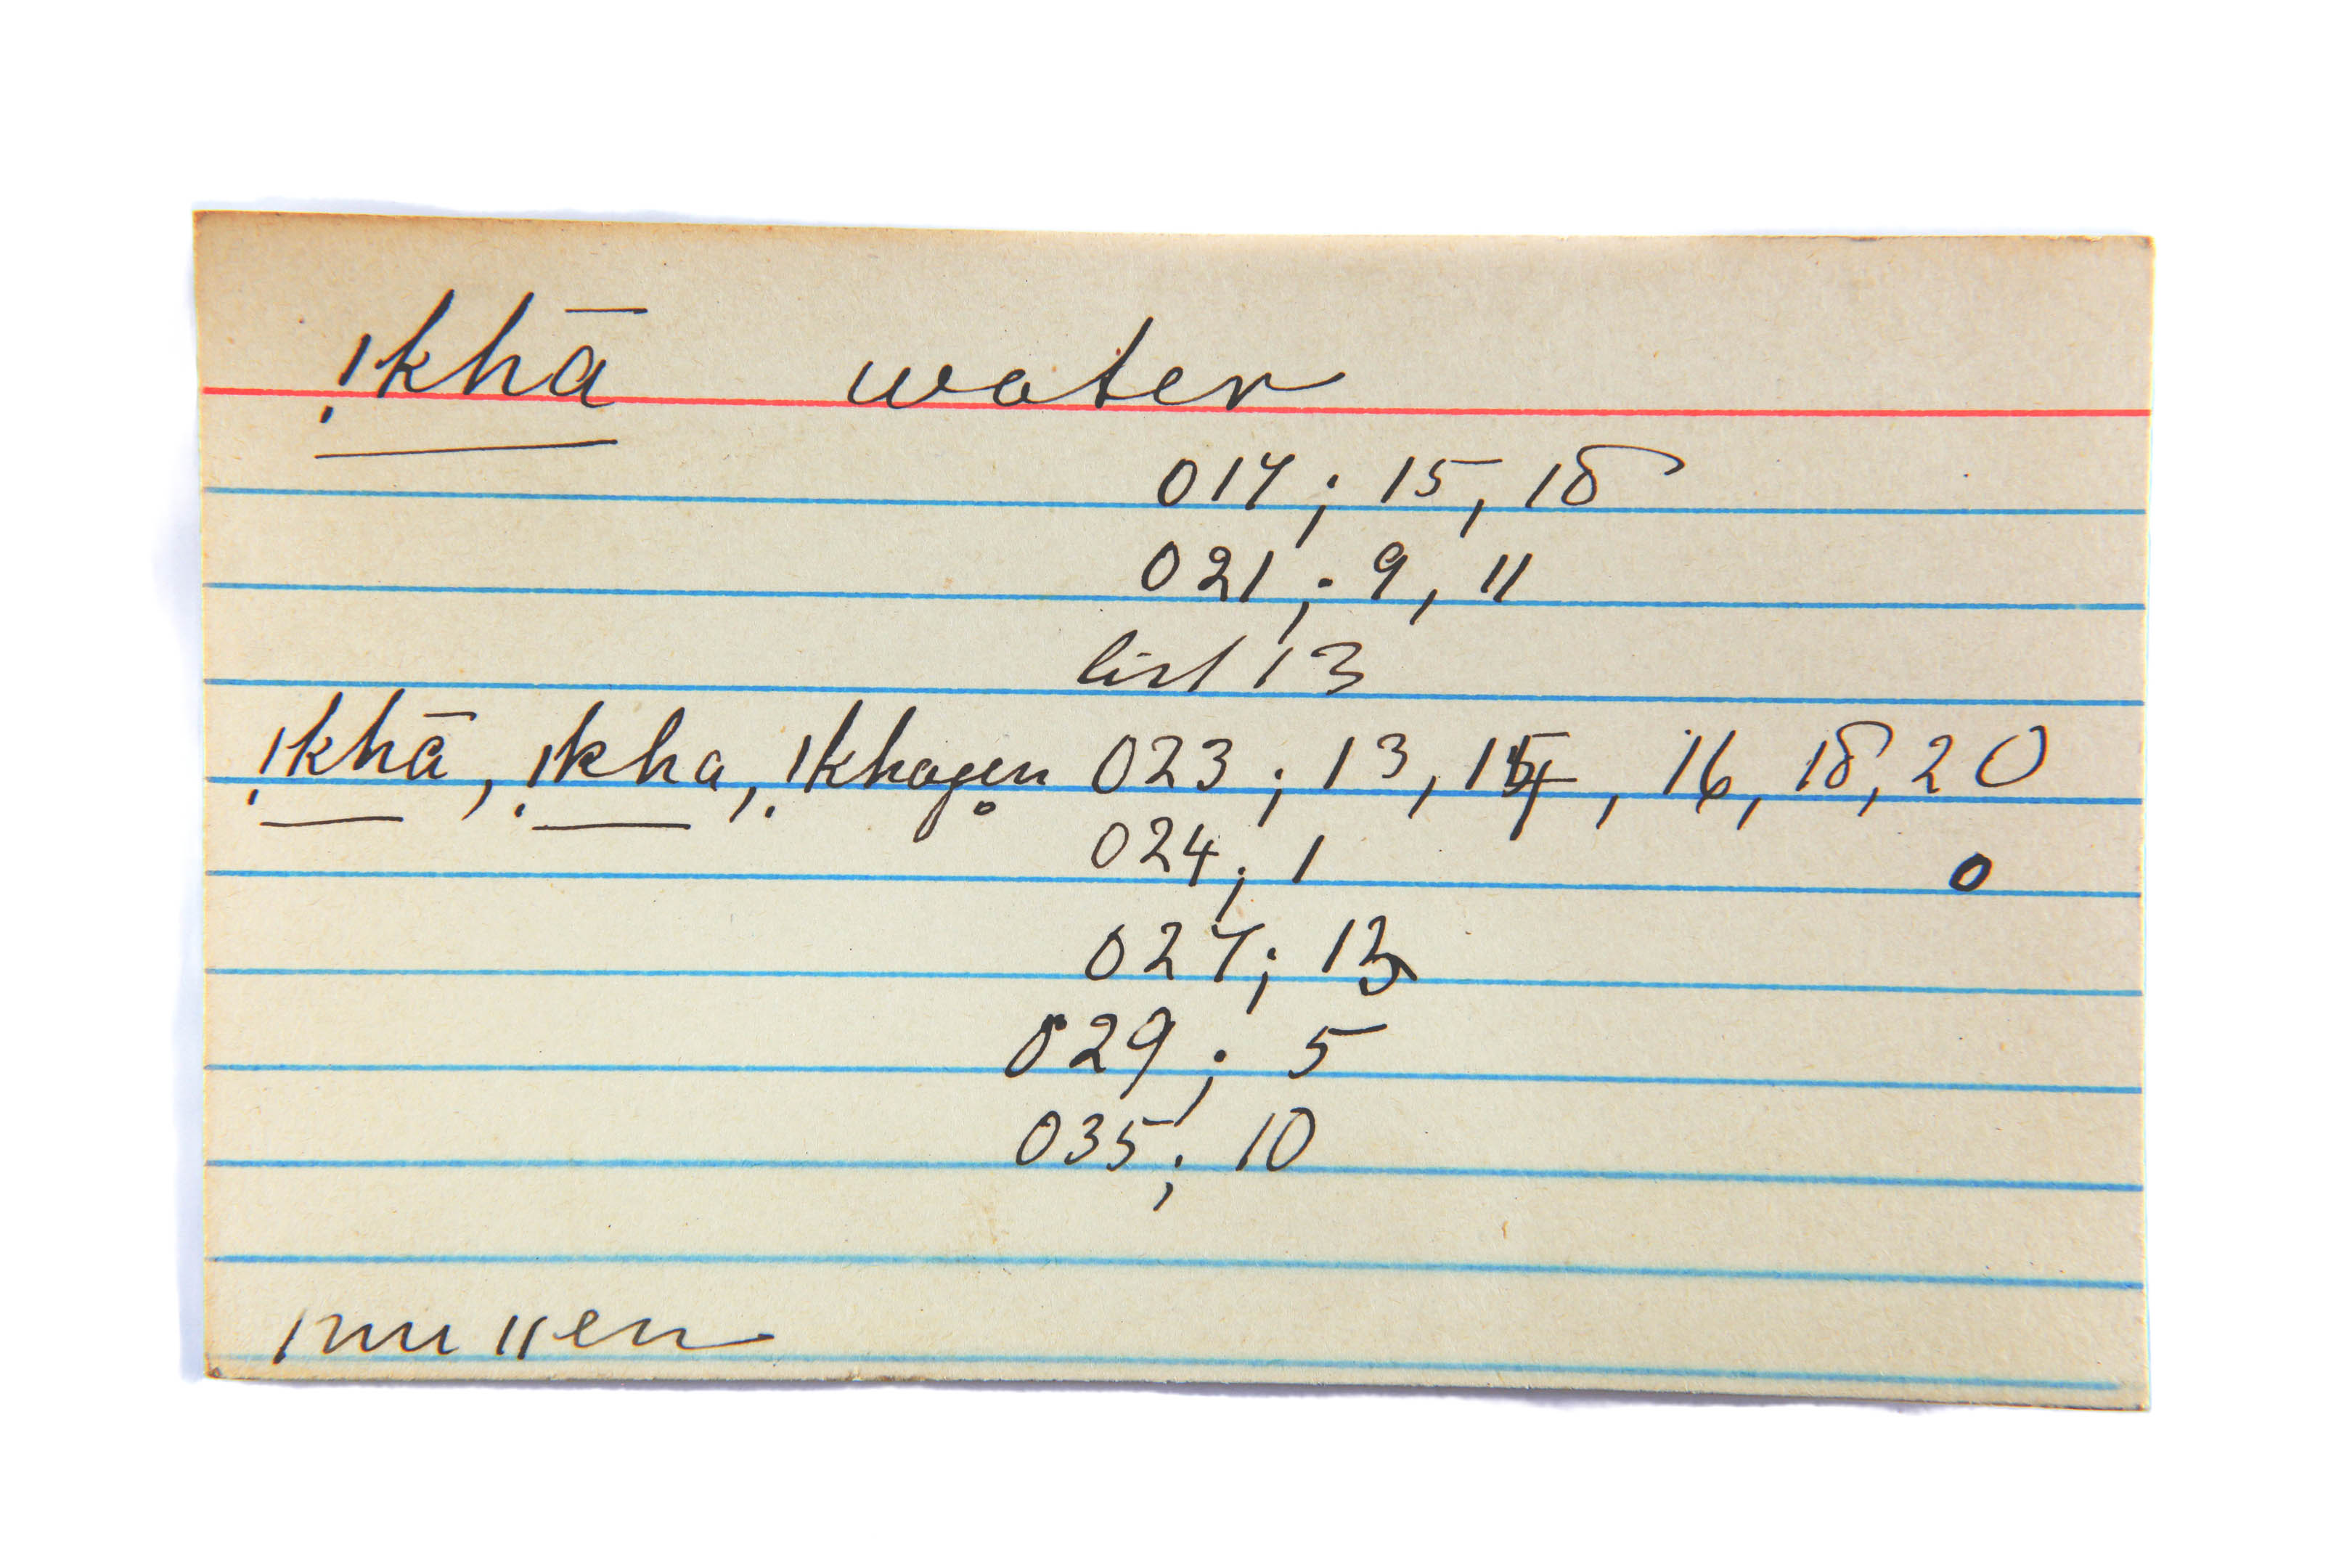 !khā water
017; 15, 18
021; 9, 11
list 13
!khā, !kha, !khagen 023; 13, 14, 16, 18, 20
024; 1 0
027; 13
029; 5
035; 10